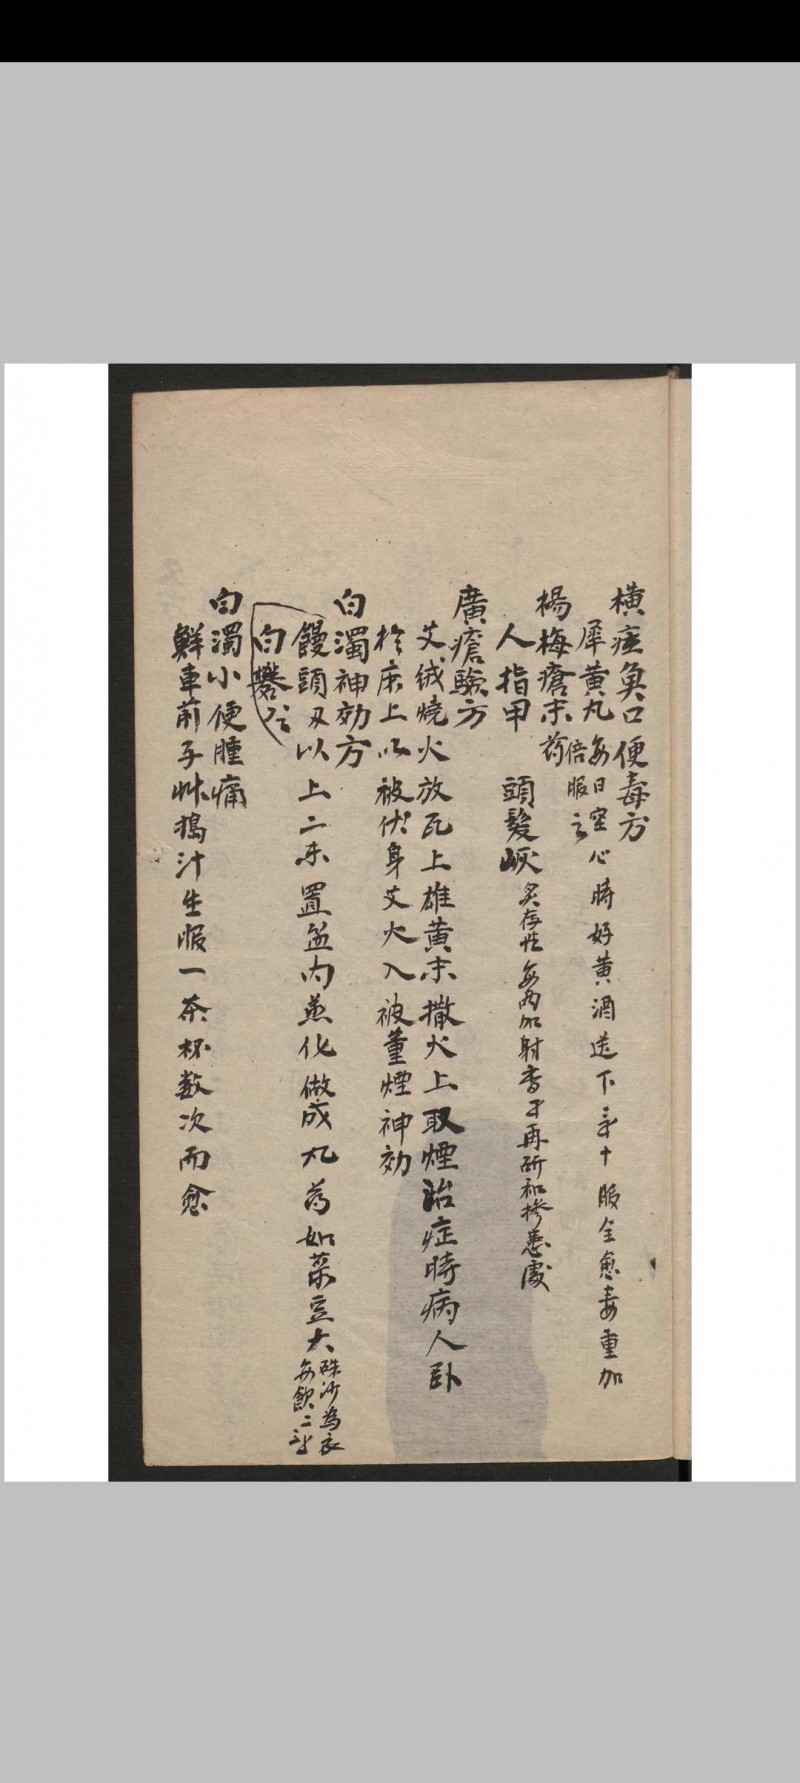 橫痃魚口便毒方
犀黃丸 每日空心時好黃酒送下 三十服全愈毒重加
倍服之
楊梅瘡末药
人指甲 頭髮灰 炙存性每兩加射香 再研和摻患處
廣瘡驗方
艾絨燒火放瓦上雄黃末撒火上取煙治症時病人臥
於床上以被伏身艾火入被薰煙神効
白濁神効方
饅頭 以上二末置盆內蒸化做成丸為如菉豆大 硃沙為衣
每飲二
白礬
白濁小便腫痛
鮮車前子艸搗汁生服一茶杯数次而愈